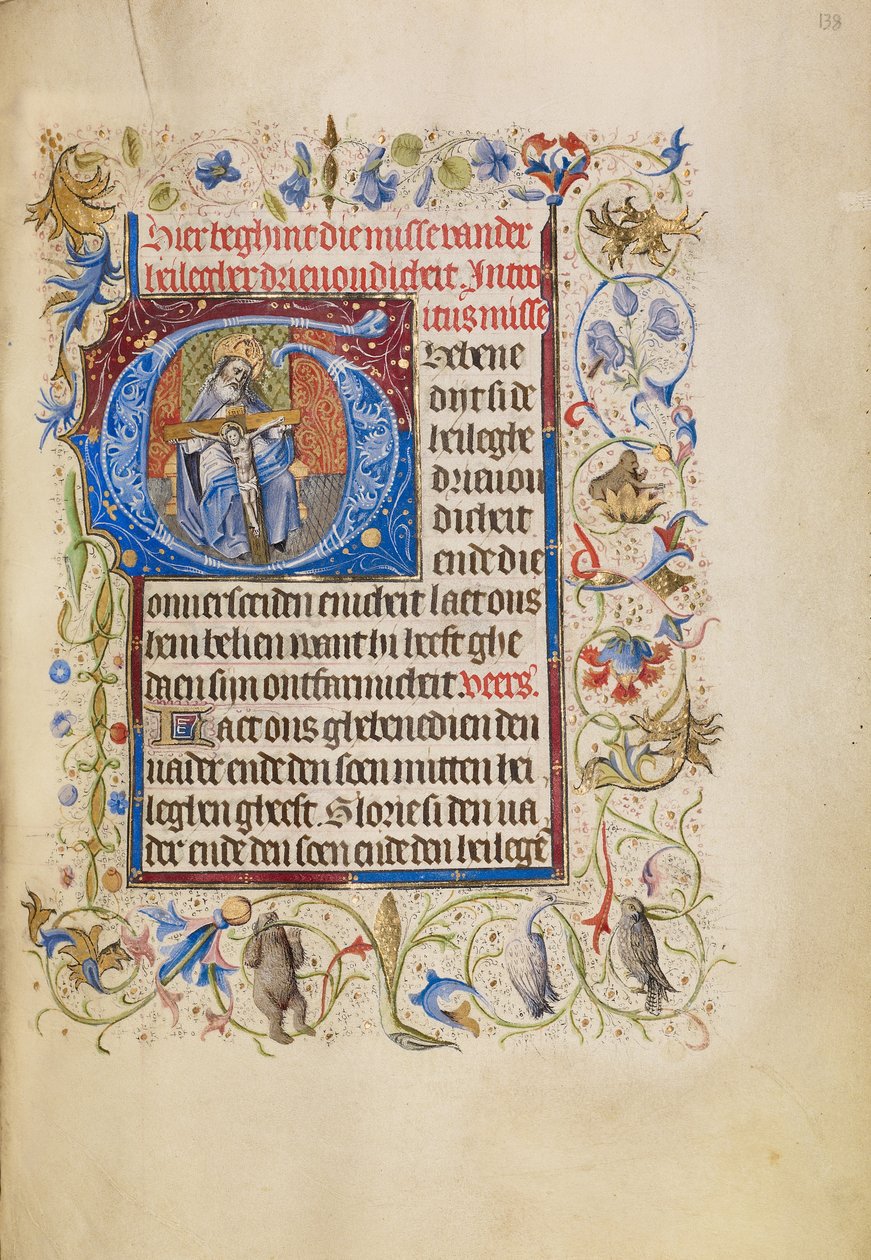 138
Hier beghint die misse van der
heilegher drieuondicheit. Intro
itus misse
Ghebene
dijt si de
heileghe
drieuon
dicheit
ende die
onuersceiden enicheit laet ons
hem belien want hi heeft ghe
daen sijn ontfarmicheit. veers.
Laet ons ghebenedien den
vader ende den soen mitten hei
leghen gheest. Glorie si den va
der ende den soen ende den heilegē